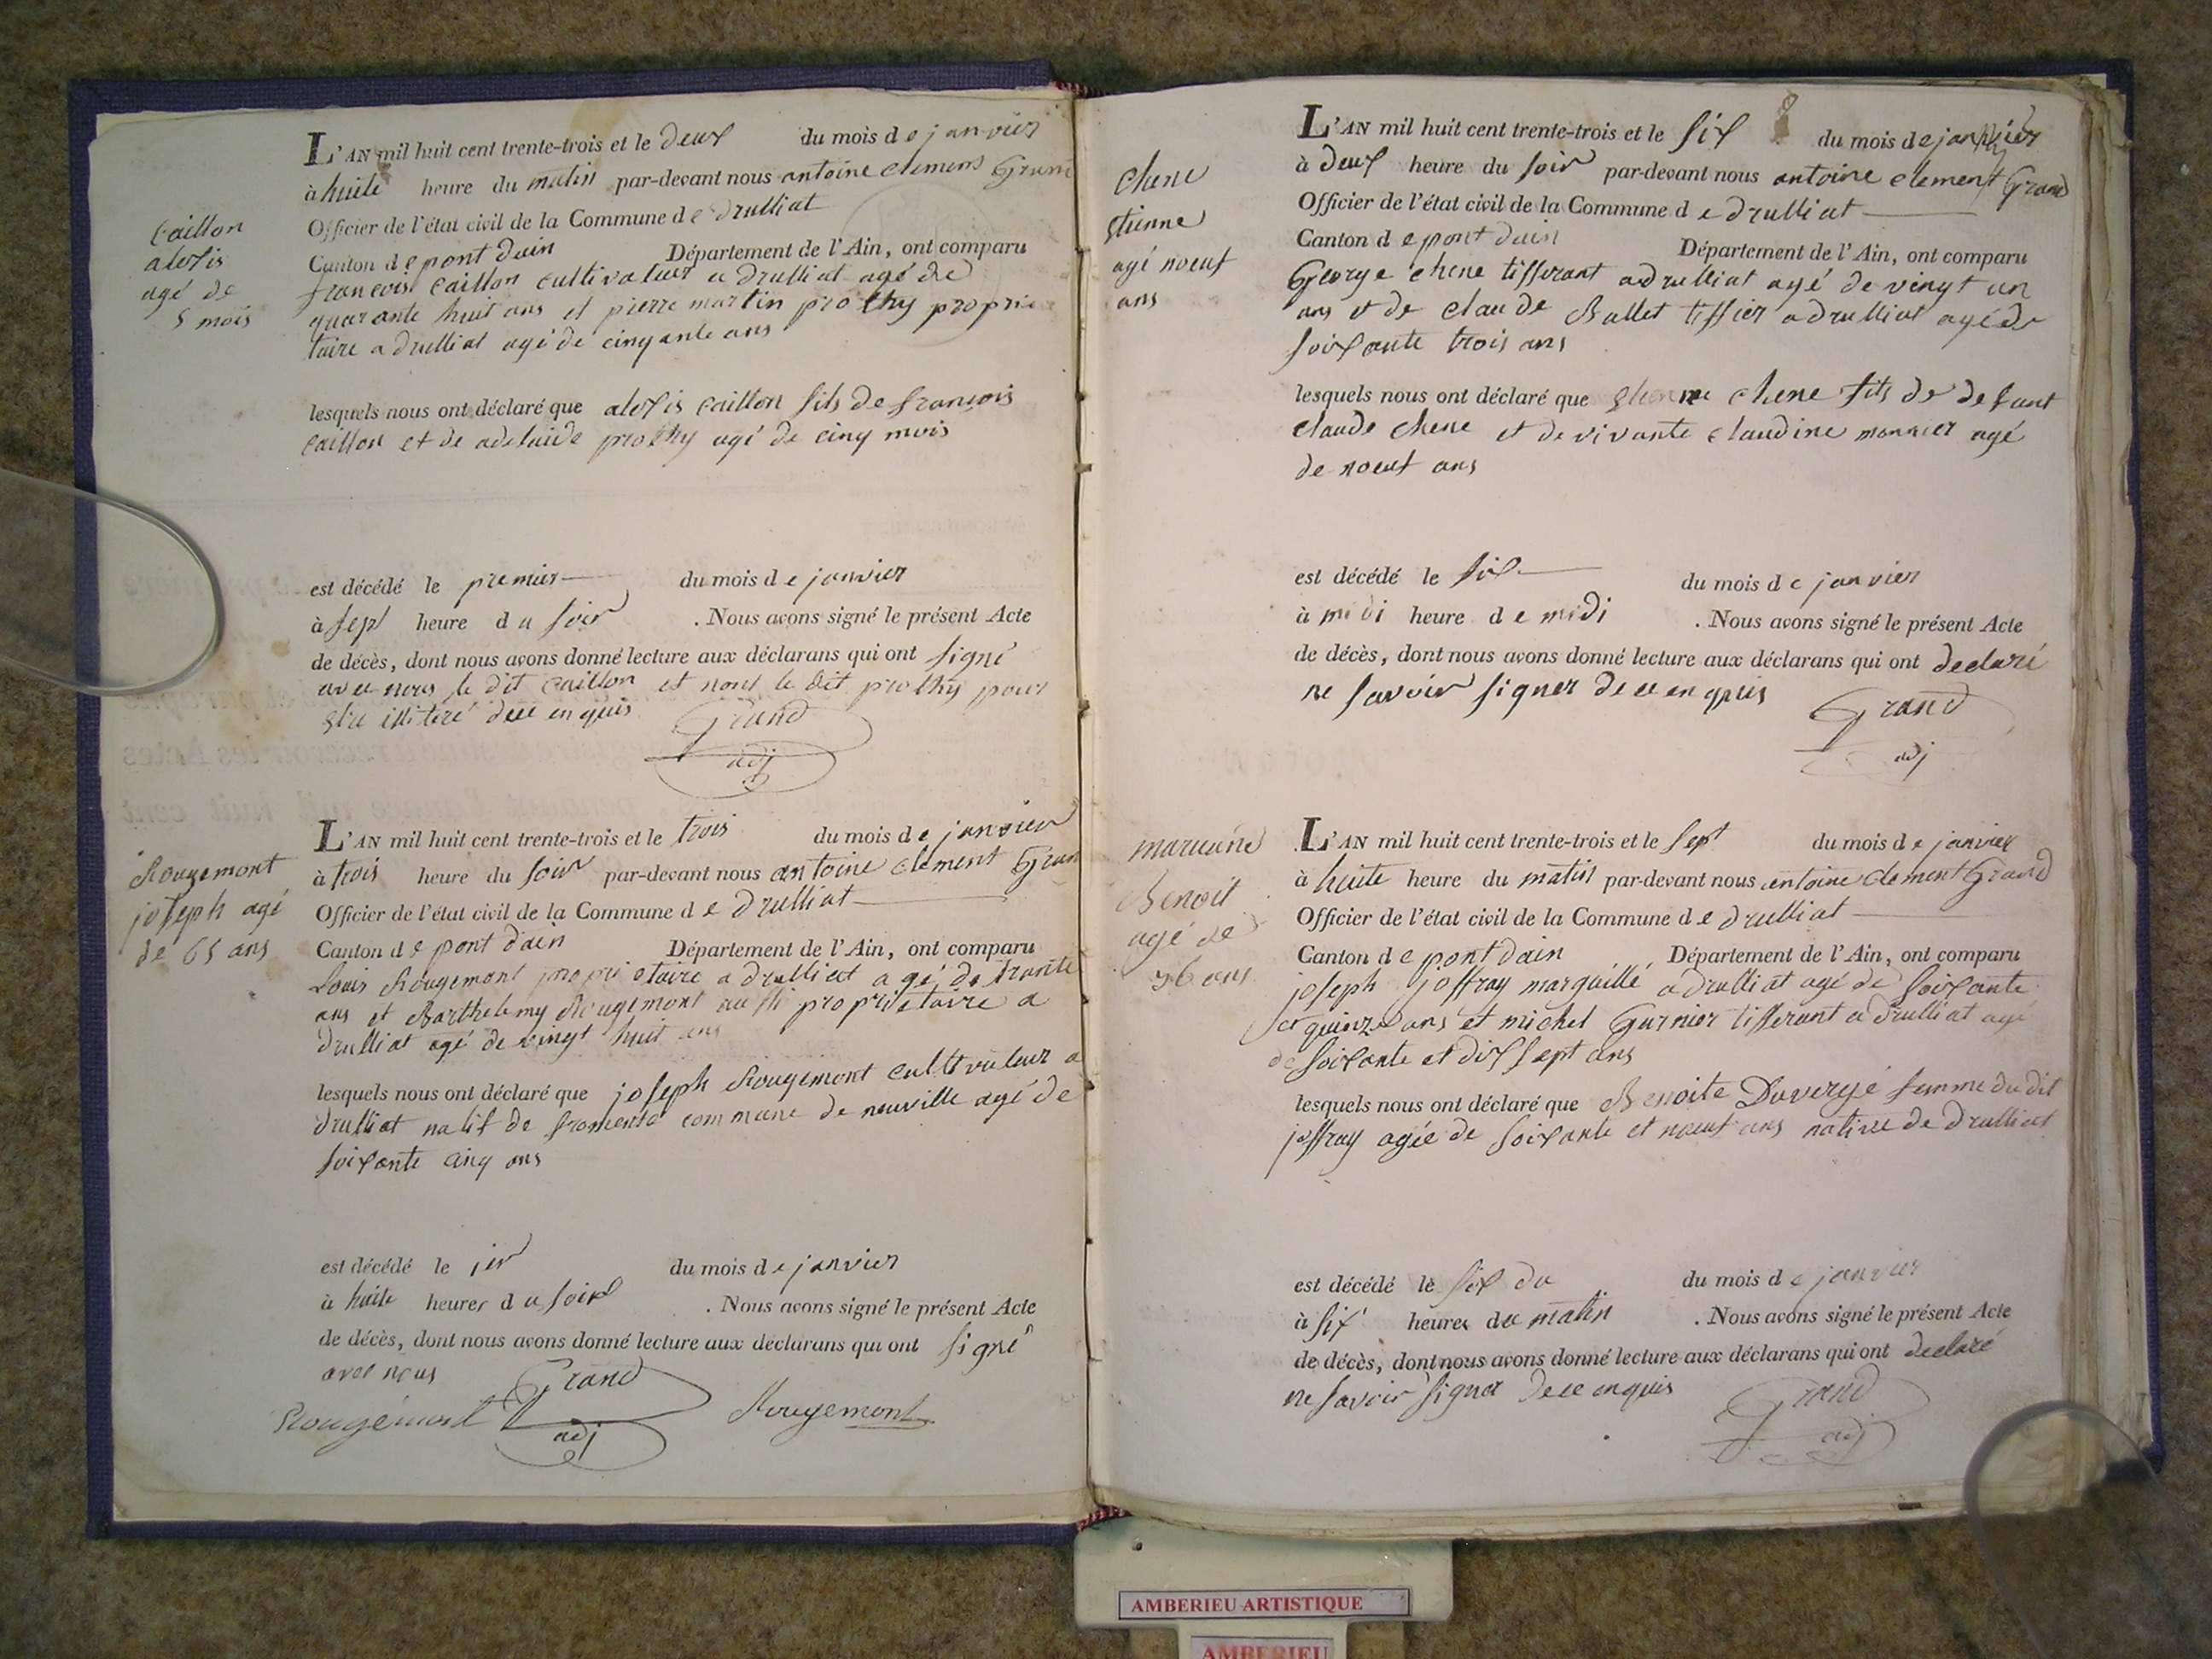 L'AN mil huit cent trente-trois et le deux du mois de janvier
à huite heure du matin par-devant nous antoine clement Grand
Officier de l'état civil de la Commune de drulliat
Canton de pont dain Département de l'Ain, ont comparu
francois Caillon cultivateur a drulliat agé de
quarante huit ans et pierre martin prothy proprie
taire a drulliat agé de cinqante ans
Caillon
alexis
agé de
5 mois
lesquels nous ont déclaré que alexis Caillon fils de françois
Caillon et de adelaide prothy agé de cinq mois
est décédé le premier du mois de janvier
à sept heure du soir . Nous avons signé le présent Acte
de décès, dont nous avons donné lecture aux déclarans qui ont signé
avec nous le dit Caillon et nont le dit prothy pour
etre illiteré dece enquis
Grand
adj
L'AN mil huit cent trente-trois et le trois du mois de janvier
à trois heure du soir par-devant nous antoine clement Gran
Officier de l'état civil de la Commune de drulliat
Canton de pont d'ain Département de l'Ain, ont comparu
Louis Rougemont proprietaire a drulliat agé de trante
ans et Barthelemy Rougemont aussi proprietaire a
drulliat agé de vingt huit ans
Rougemont
joseph agé
de 65 ans
lesquels nous ont déclaré que joseph Rougemont cultivateur a
drulliat natif de fromente commune de neuville agé de
soixante cinq ans
est décédé le 1er du mois de janvier
à huite heures du soir . Nous avons signé le présent Acte
de décès, dont nous avons donné lecture aux déclarans qui ont signé
avec nous
Grand
adj
Rougemont
Rougemont
L'AN mil huit cent trente-trois et le six du mois de janvier
à deux heure du soir par-devant nous antoine clement Grand
Officier de l'état civil de la Commune de drulliat
Canton de pont dain Département de l'Ain, ont comparu
George chene tisserant a drulliat agé de vingt un
ans et de claude Ballet tissier a drulliat agé de
soixante trois ans
Chene
etienne
agé noeuf
ans
lesquels nous ont déclaré que etienne chene fils de defunt
claude chene et de vivante claudine monnier agé
de noeuf ans
est décédé le six du mois de janvier
à midi heure de midi . Nous avons signé le présent Acte
de décès, dont nous avons donné lecture aux déclarans qui ont declaré
ne savoir signer de ce enquis
Grand
adj
L'AN mil huit cent trente-trois et le sept du mois de janvier
à huite heure du matin par-devant nous antoine clement Grand
Officier de l'état civil de la Commune de drulliat
Canton de pont dain Département de l'Ain, ont comparu
joseph joffray marguillé a drulliat agé de soixante
et quinze ans et michel Gurnier tisserant a drulliat agé
de soixante et dix sept ans
Benoit
agé de
ans
lesquels nous ont déclaré que Benoite Duvergé femme du dit
joffray agée de soixante et noeuf ans native de drulliat
est décédé le six du du mois de janvier
à six heures du matin . Nous avons signé le présent Acte
de décès, dont nous avons donné lecture aux déclarans qui ont declaré
ne savoir signer de ce enquis
Grand
adj
AMBERIEU ARTISTIQUE
AMBERIEU